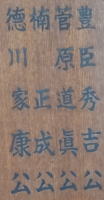 豊臣秀吉公
菅原道眞公
楠正成公
德川家康公